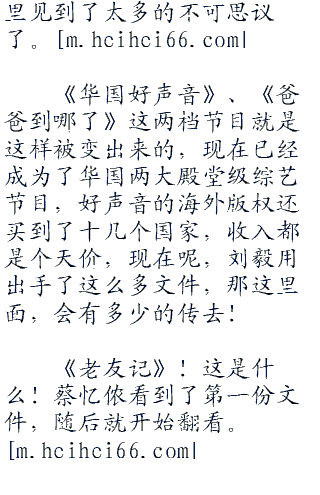 里见到了太多的不可思议
了。[m.hcihci66.com|
《华国好声音》、《爸
爸到哪了》这两档节目就是
这样被变出来的，现在已经
成为了华国两大殿堂级综艺
节目，好声音的海外版权还
买到了十几个国家，收入都
是个天价，现在呢，刘毅用
出手了这么多文件，那这里
面，会有多少的传去！
《老友记》！这是什
么！蔡忆侬看到了第一份文
件，随后就开始翻看。
[m.hcihci66.com|